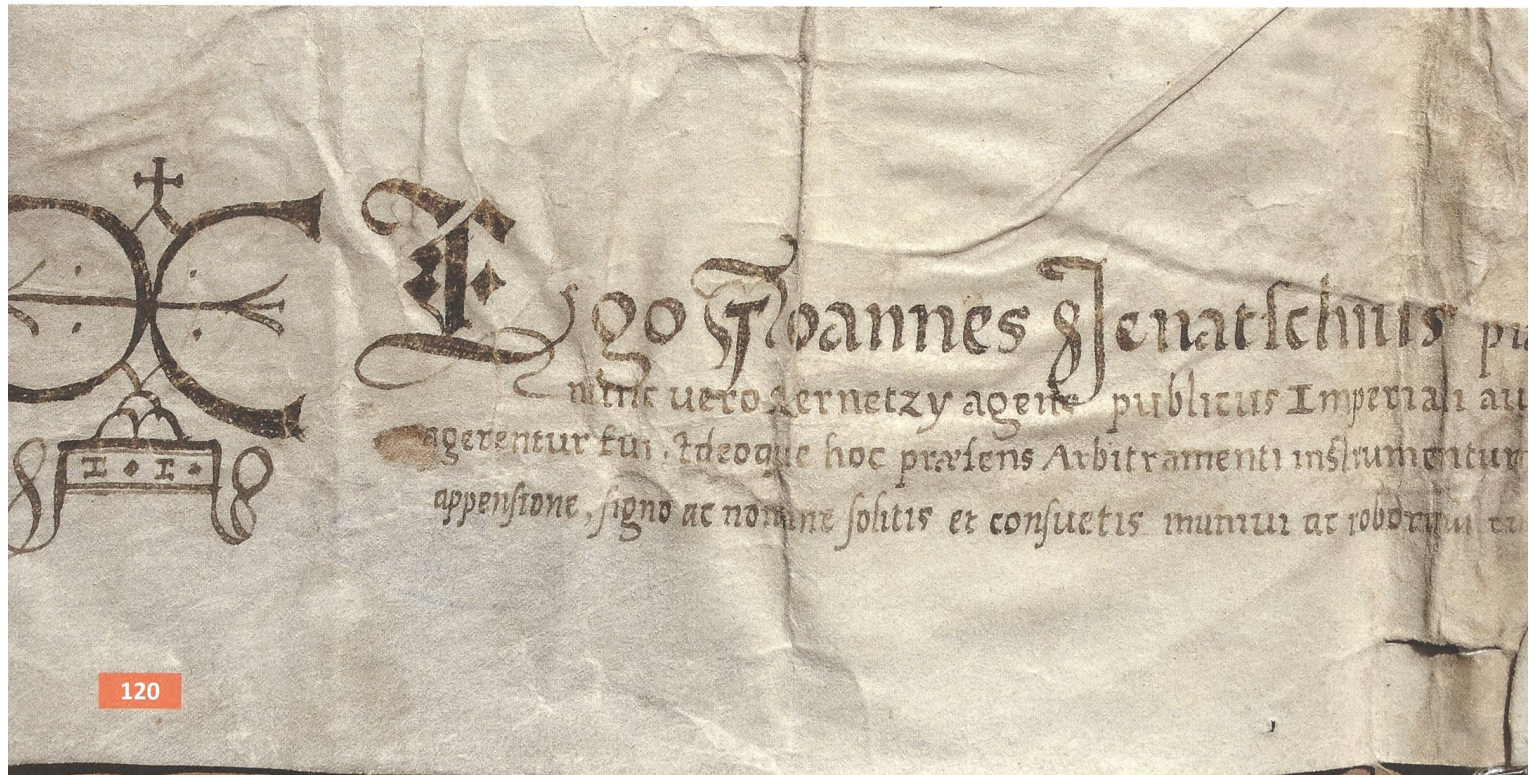 Ego Joannes Jenatschius
nunc vero Zernetzy agens publicus Imperiali au
agerentur fui. Ideoque hoc præsens Arbitramenti instrumentum
appensione, signo ac nomine solitis et consuetis munivi ac roboravi
I · I ·
120